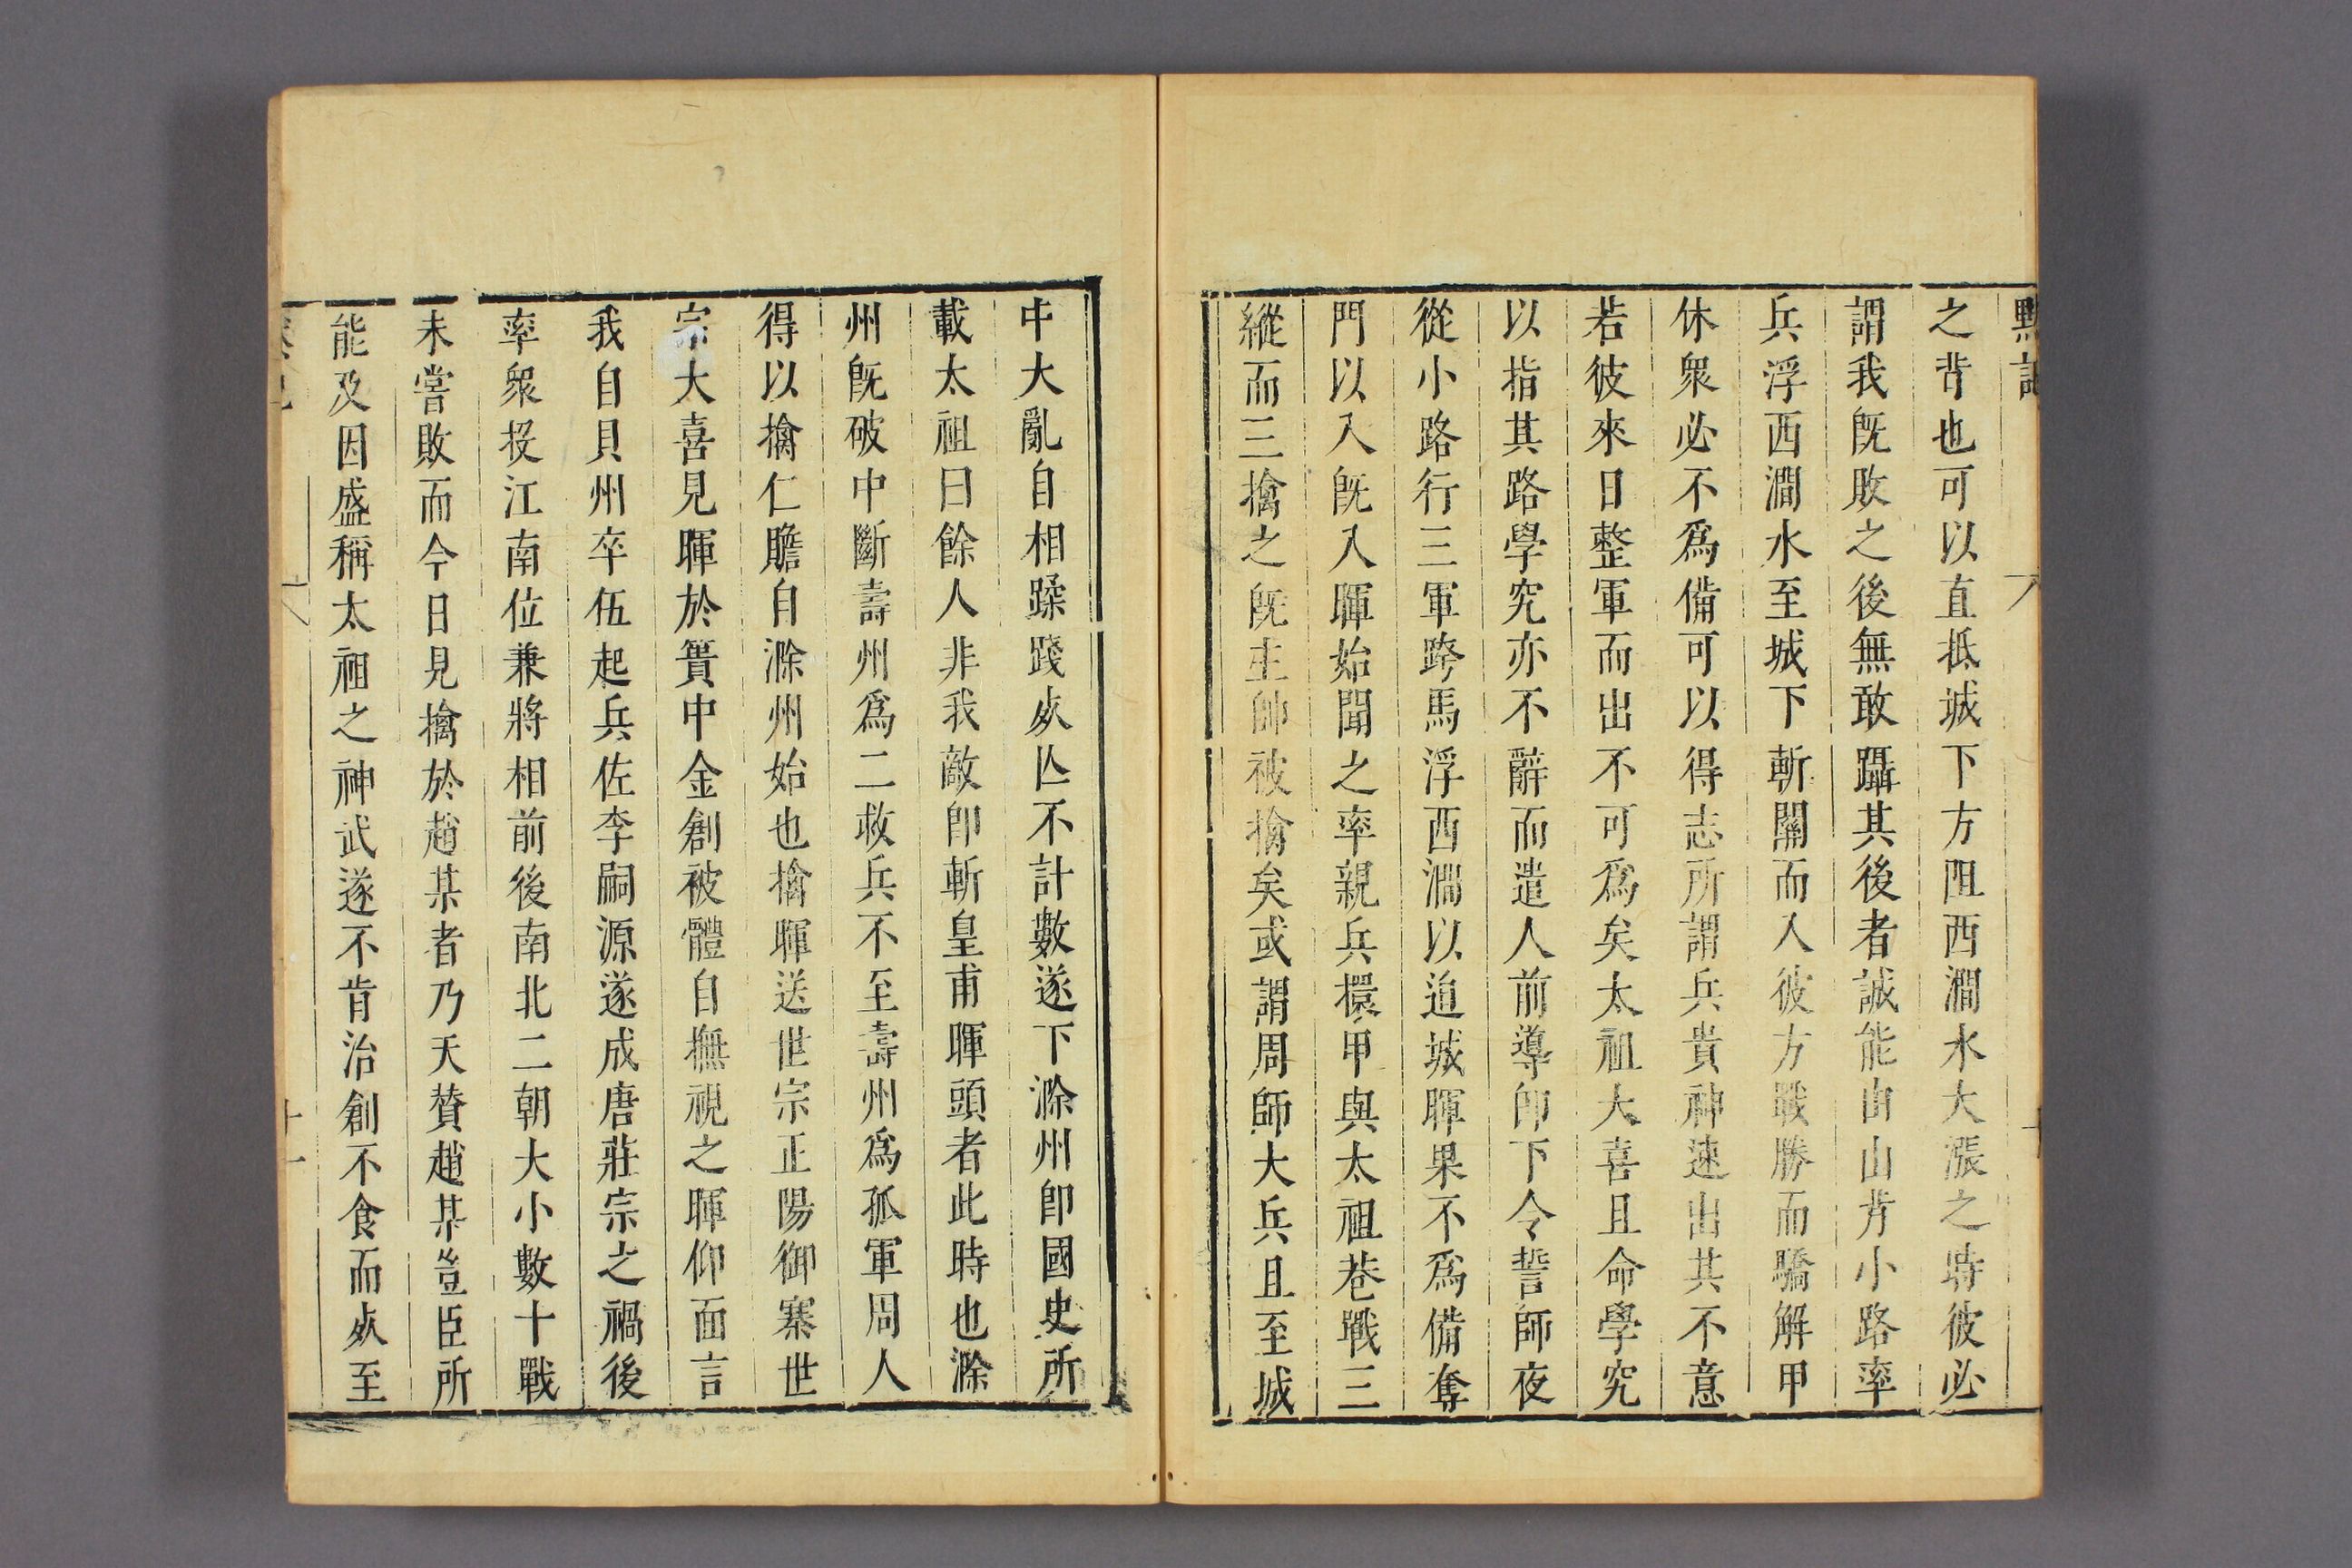 默記
之背也可以直抵城下方阻西澗水大漲之時彼必
謂我旣敗之後無敢躡其後者誠能由山背小路率
兵浮西澗水至城下斬關而入彼方戰勝而驕解甲
休衆必不爲備可以得志所謂兵貴神速出其不意
若彼來日整軍而出不可爲矣太祖大喜且命學究
以指其路學究亦不辭而遣人前導卽下令誓師夜
從小路行三軍跨馬浮西澗以迫城暉果不爲備奪
門以入旣入暉始聞之率親兵擐甲與太祖巷戰三
縱而三擒之旣主帥被擒矣或謂周師大兵且至城
中大亂自相蹂踐死亡不計數遂下滁州卽國史所
載太祖曰餘人非我敵卽斬皇甫暉頭者此時也滁
州旣破中斷壽州爲二救兵不至壽州爲孤軍周人
得以擒仁贍自滁州始也擒暉送世宗正陽御寨世
宗大喜見暉於簣中金創被體自撫視之暉仰面言
我自貝州卒伍起兵佐李嗣源遂成唐莊宗之禍後
率衆投江南位兼將相前後南北二朝大小數十戰
未嘗敗而今日見擒於趙某者乃天贊趙某豈臣所
能及因盛稱太祖之神武遂不肯治創不食而死至
十一